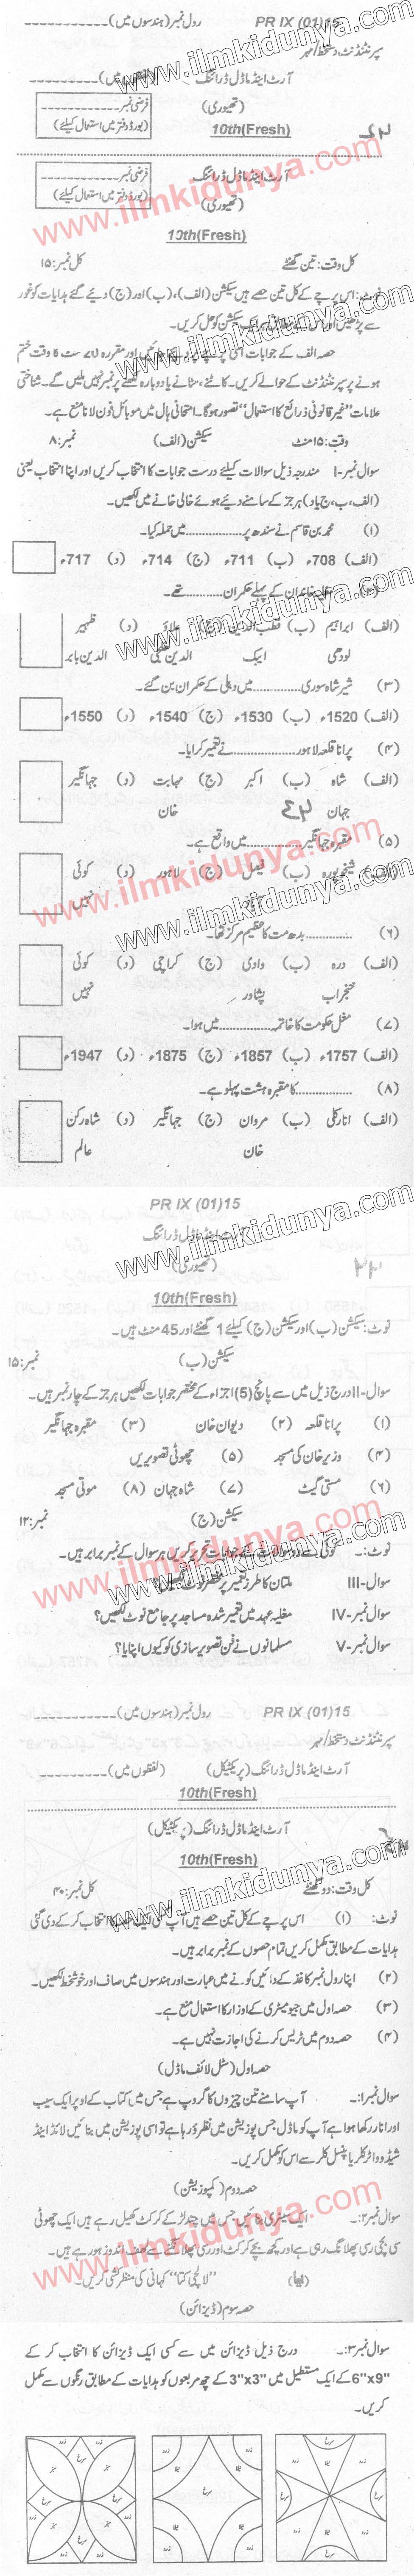 PR IX (01)15 رول نمبر (ہندسوں میں)
سپرنٹنڈنٹ دستخط/مہر
آرٹ اینڈ ماڈل ڈرائنگ
(تھیوری)
فرضی نمبر
(بورڈ دفتر میں استعمال کیلئے)
10th(Fresh)
آرٹ اینڈ ماڈل ڈرائنگ
(تھیوری)
فرضی نمبر
(بورڈ دفتر میں استعمال کیلئے)
www.ilmkidunya.com
10th(Fresh)
کل وقت: تین گھنٹے کل نمبر: ۱۵
نوٹ: اس پرچے کے کل تین حصے ہیں سیکشن (الف)، (ب) اور (ج) دیئے گئے ہدایات کو غور
سے پڑھیں اور اس کے مطابق سیکشن کو حل کریں۔
حصہ الف کے جوابات اسی پرچے پر دیئے جائیں اور مقررہ 20 منٹ کا وقت ختم
ہونے پر سپرنٹنڈنٹ کے حوالے کریں۔ کاٹنے، مٹانے یا دوبارہ لکھنے پر نمبر نہیں ملیں گے۔ شناختی
علامات "غیر قانونی ذرائع کا استعمال" تصور ہوگا۔ امتحانی ہال میں موبائل فون لانا منع ہے۔
وقت: ۱۵ منٹ سیکشن (الف) نمبر: ۸
سوال نمبر-I مندرجہ ذیل سوالات کیلئے درست جوابات کا انتخاب کریں اور اپنا انتخاب یعنی
(الف، ب، ج یا د) ہر جز کے سامنے دیئے ہوئے خالی خانے میں لکھیں۔
(۱) محمد بن قاسم نے سندھ پر ............... میں حملہ کیا۔
(الف) 708ء (ب) 711ء (ج) 714ء (د) 717ء
(۲) خاندان کے پہلے حکمران ............ تھے۔
(الف) ابراہیم لودھی (ب) قطب الدین ایبک (ج) علاؤ الدین خلجی (د) ظہیر الدین بابر
(۳) شیر شاہ سوری ............ میں دہلی کے حکمران بن گئے۔
(الف) 1520ء (ب) 1530ء (ج) 1540ء (د) 1550ء
(۴) پرانا قلعہ لاہور ............... نے تعمیر کرایا۔
(الف) شاہ جہان (ب) اکبر (ج) مہابت خان (د) جہانگیر
(۵) مقبرہ جہانگیر ............... میں واقع ہے۔
(الف) شیخوپورہ (ب) فیصل آباد (ج) لاہور (د) کوئی نہیں
(۶) ............ بدھ مت کا عظیم مرکز تھا۔
(الف) درہ خنجراب (ب) وادی پشاور (ج) کراچی (د) کوئی نہیں
(۷) مغل حکومت کا خاتمہ ............... میں ہوا۔
(الف) 1757ء (ب) 1857ء (ج) 1875ء (د) 1947ء
(۸) ............... کا مقبرہ ہشت پہلو ہے۔
(الف) انارکلی (ب) مروان خان (ج) جہانگیر (د) شاہ رکن عالم
PR IX (01)15
آرٹ اینڈ ماڈل ڈرائنگ
(تھیوری)
10th(Fresh)
نوٹ: سیکشن (ب) اور سیکشن (ج) کیلئے 1 گھنٹے اور 45 منٹ ہیں۔
سیکشن (ب) نمبر: ۱۵
سوال-II درج ذیل میں سے پانچ (5) اجزاء کے مختصر جوابات لکھیں ہر جز کے چار نمبر ہیں۔
(۱) پرانا قلعہ (۲) دیوان خان (۳) مقبرہ جہانگیر
(۴) وزیر خان کی مسجد (۵) چھوٹی تصویریں
(۶) مستی گیٹ (۷) شاہ جہان (۸) موتی مسجد
سیکشن (ج) نمبر: ۱۲
نوٹ:۔ کوئی سے دو سوالات کے جوابات تحریر کریں ہر سوال کے نمبر برابر ہیں۔
سوال-III ملتان کا طرز تعمیر پر مختصر نوٹ لکھیں؟
سوال نمبر-IV مغلیہ عہد میں تعمیر شدہ مساجد پر جامع نوٹ لکھیں؟
سوال نمبر-V مسلمانوں نے فن تصویر سازی کو کیوں اپنایا؟
PR IX (01)15 رول نمبر (ہندسوں میں)
سپرنٹنڈنٹ دستخط/مہر
آرٹ اینڈ ماڈل ڈرائنگ (پریکٹیکل) (لفظوں میں)
10th(Fresh)
آرٹ اینڈ ماڈل ڈرائنگ (پریکٹیکل)
10th(Fresh)
کل وقت: دو گھنٹے کل نمبر: ۴۰
نوٹ: (۱) اس پرچے کے کل تین حصے ہیں آپ انتخاب کر کے دی گئی
ہدایات کے مطابق مکمل کریں تمام حصوں کے نمبر برابر ہیں۔
(۲) اپنا رول نمبر کاغذ کے دائیں کونے میں عبارت اور ہندسوں میں صاف اور خوشخط لکھیں۔
(۳) حصہ اول میں جیومیٹری کے اوزار کا استعمال منع ہے۔
(۴) حصہ دوم میں ٹریس کرنے کی اجازت نہیں ہے۔
حصہ اول (سٹل لائف ماڈل)
سوال نمبر ۱:۔ آپ سامنے تین چیزوں کا گروپ ہے جس میں کتاب کے اوپر ایک سیب
اور انار رکھا ہوا ہے آپ کو ماڈل جس پوزیشن میں نظر آ رہا ہے تو اسی پوزیشن میں بنائیں لائٹ اینڈ
شیڈ و واٹر کلر یا پنسل کلر سے اس کو مکمل کریں۔
حصہ دوم (کمپوزیشن)
سوال نمبر ۲:۔ ایک سینری بنائیں جس میں چند لڑکے کرکٹ کھیل رہے ہیں ایک چھوٹی
سی بچی رسی پھلانگ رہی ہے اور کچھ بچے کرکٹ اور رسی پھلانگنے سے لطف اندوز ہو رہے ہیں۔
(یا) "لالچی کتا" کہانی کی منظر کشی کریں۔
حصہ سوم (ڈیزائن)
سوال نمبر ۳:۔ درج ذیل ڈیزائن میں سے کسی ایک ڈیزائن کا انتخاب کر کے
6"x9" کے ایک مستطیل میں 3"x3" کے چھ مربعوں کو ہدایات کے مطابق رنگوں سے مکمل
کریں۔